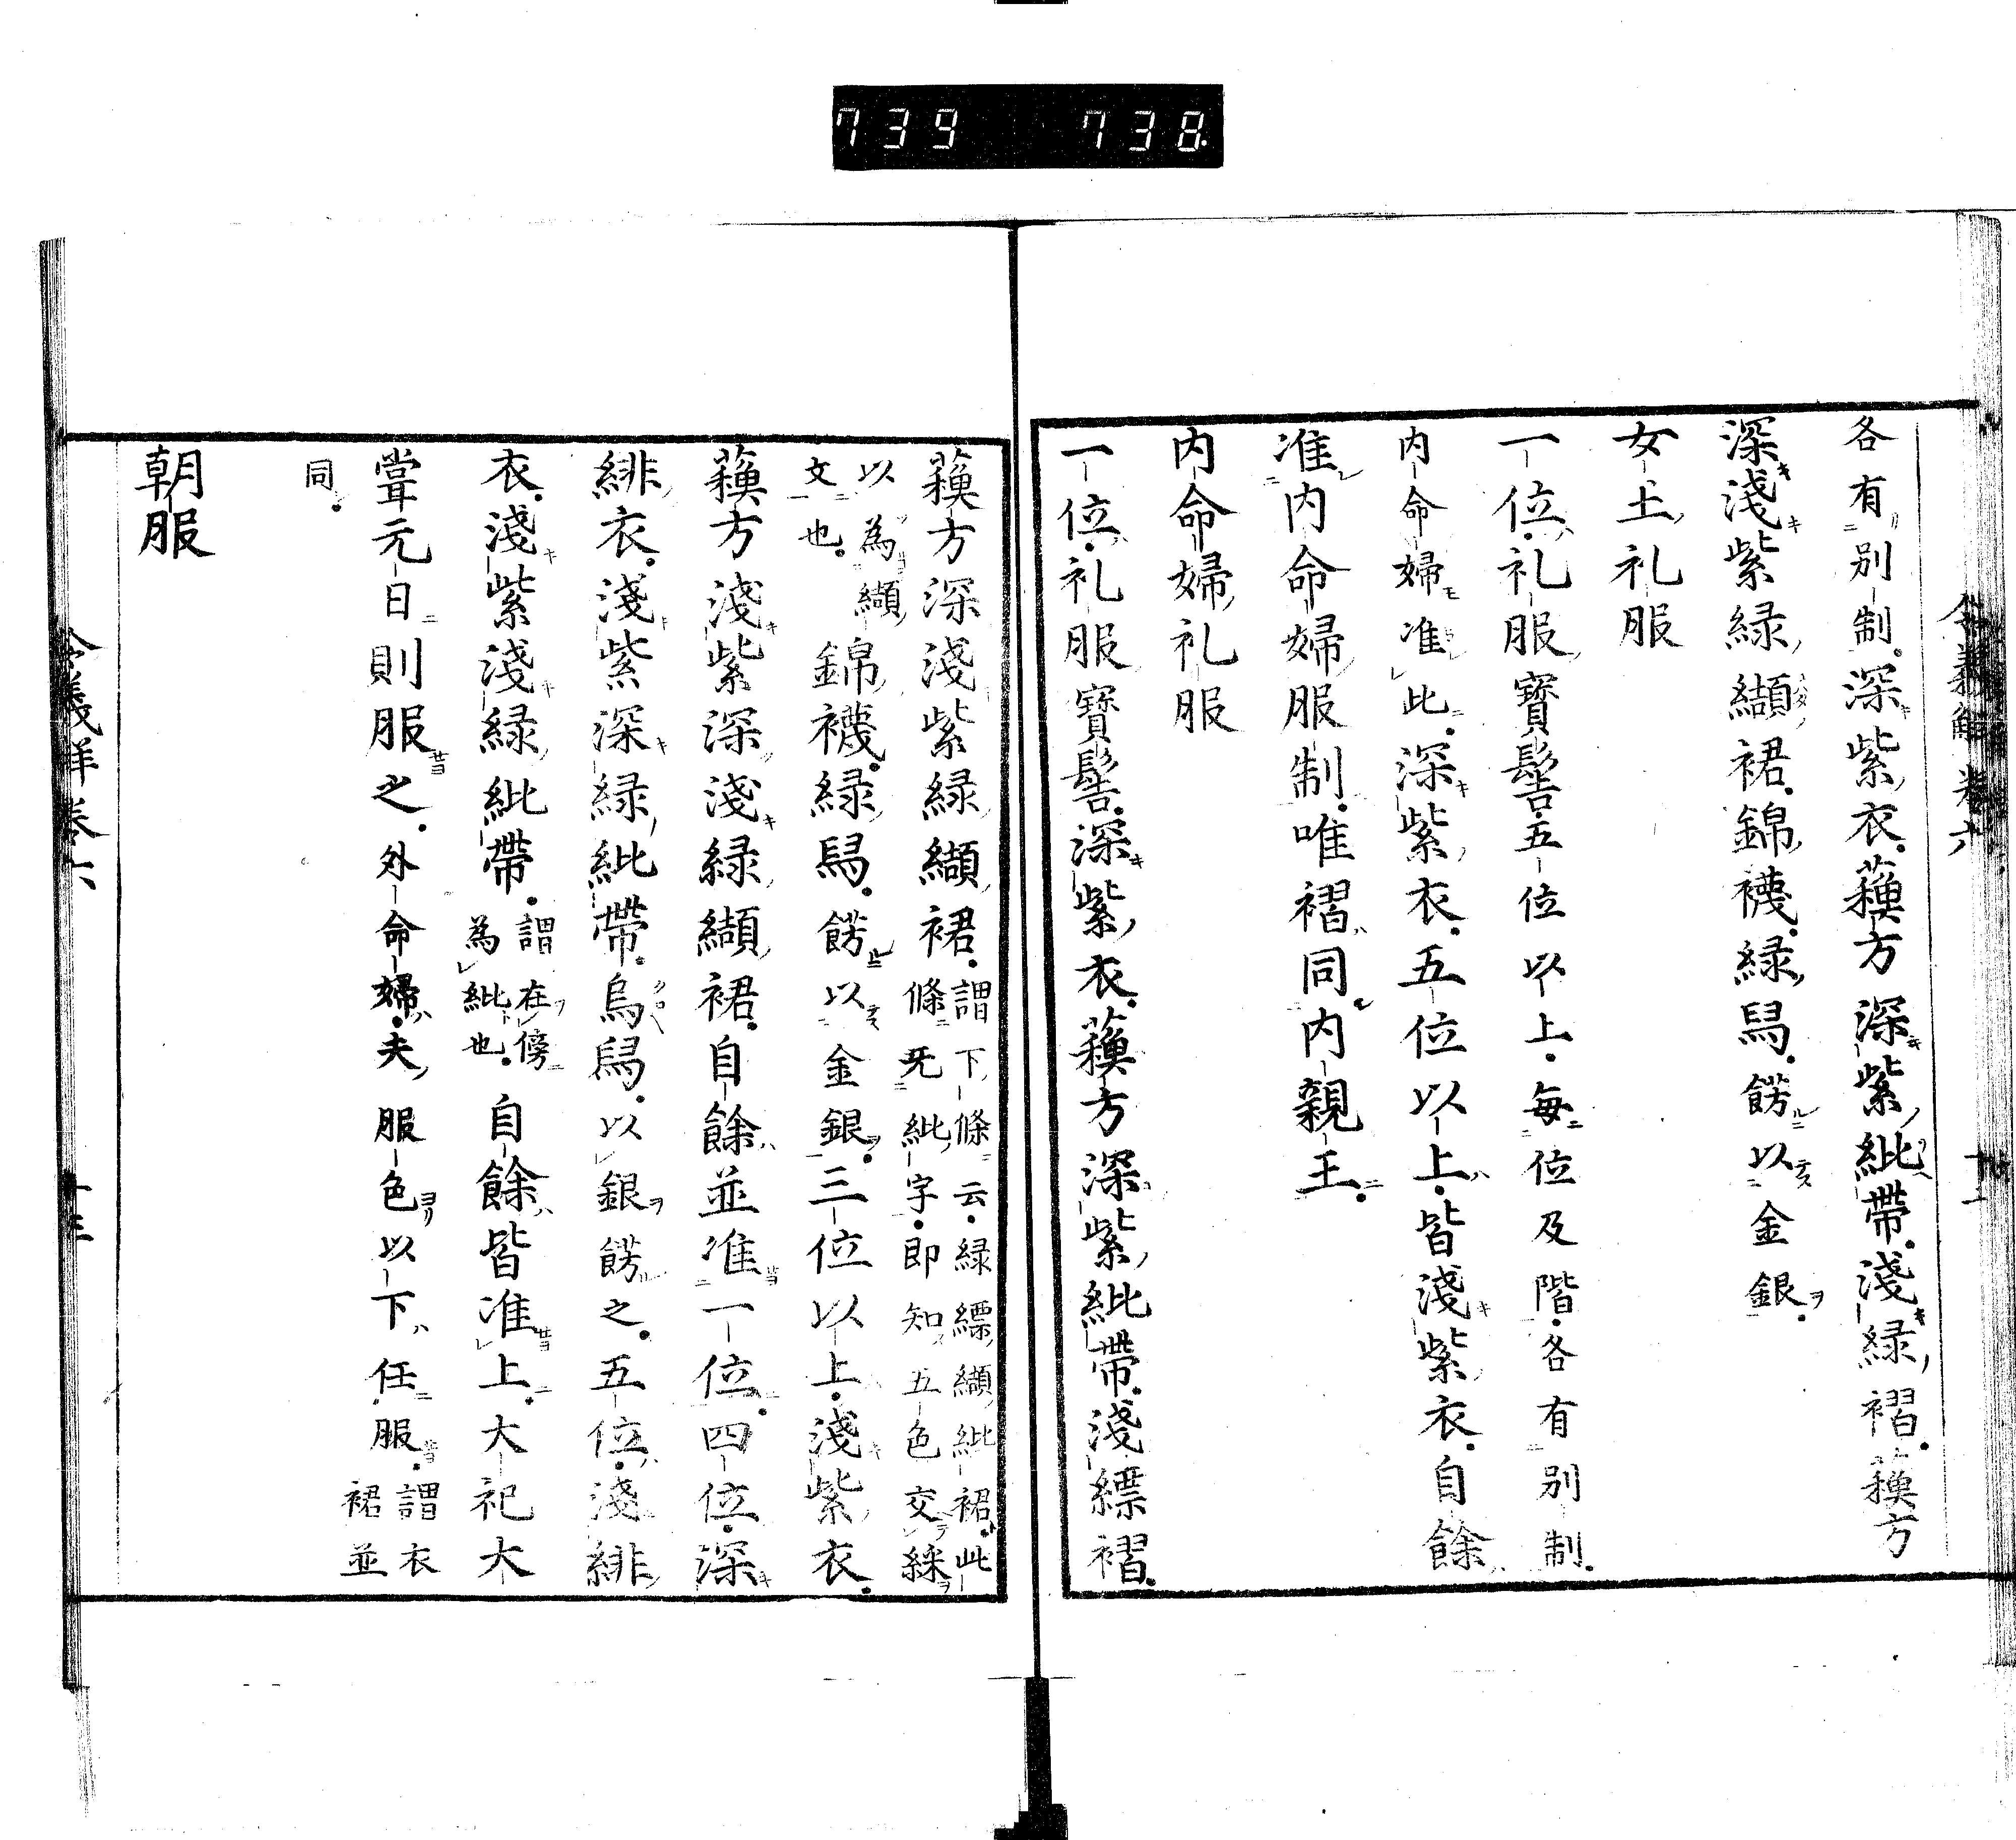 739 738
各有別制深紫衣蘓方深紫紕帶淺緑褶蘓方
深淺紫緑纈裙錦襪緑舄餝以金銀
女王礼服
一位礼服寳髻五位以上毎位及階各有別制
内命婦准此深紫衣五位以上皆淺紫衣自餘
准内命婦服制唯褶同内親王
内命婦礼服
一位礼服寳髻深紫衣蘓方深紫紕帶淺縹褶
蘓方深淺紫緑纈裙謂下條云緑縹纈紕裙此
條旡紕字即知五色交綵
以為纈
文也錦襪緑舄餝以金銀三位以上淺紫衣
蘓方淺紫深淺緑纈裙自餘並准一位四位深
緋衣淺紫深緑紕帶烏舄以銀餝之五位淺緋
衣淺紫淺緑紕帶謂在傍
為紕也自餘皆准上大祀大
甞元日則服之外命婦夫服色以下任服謂衣
裙並
同
朝服
令義解卷六